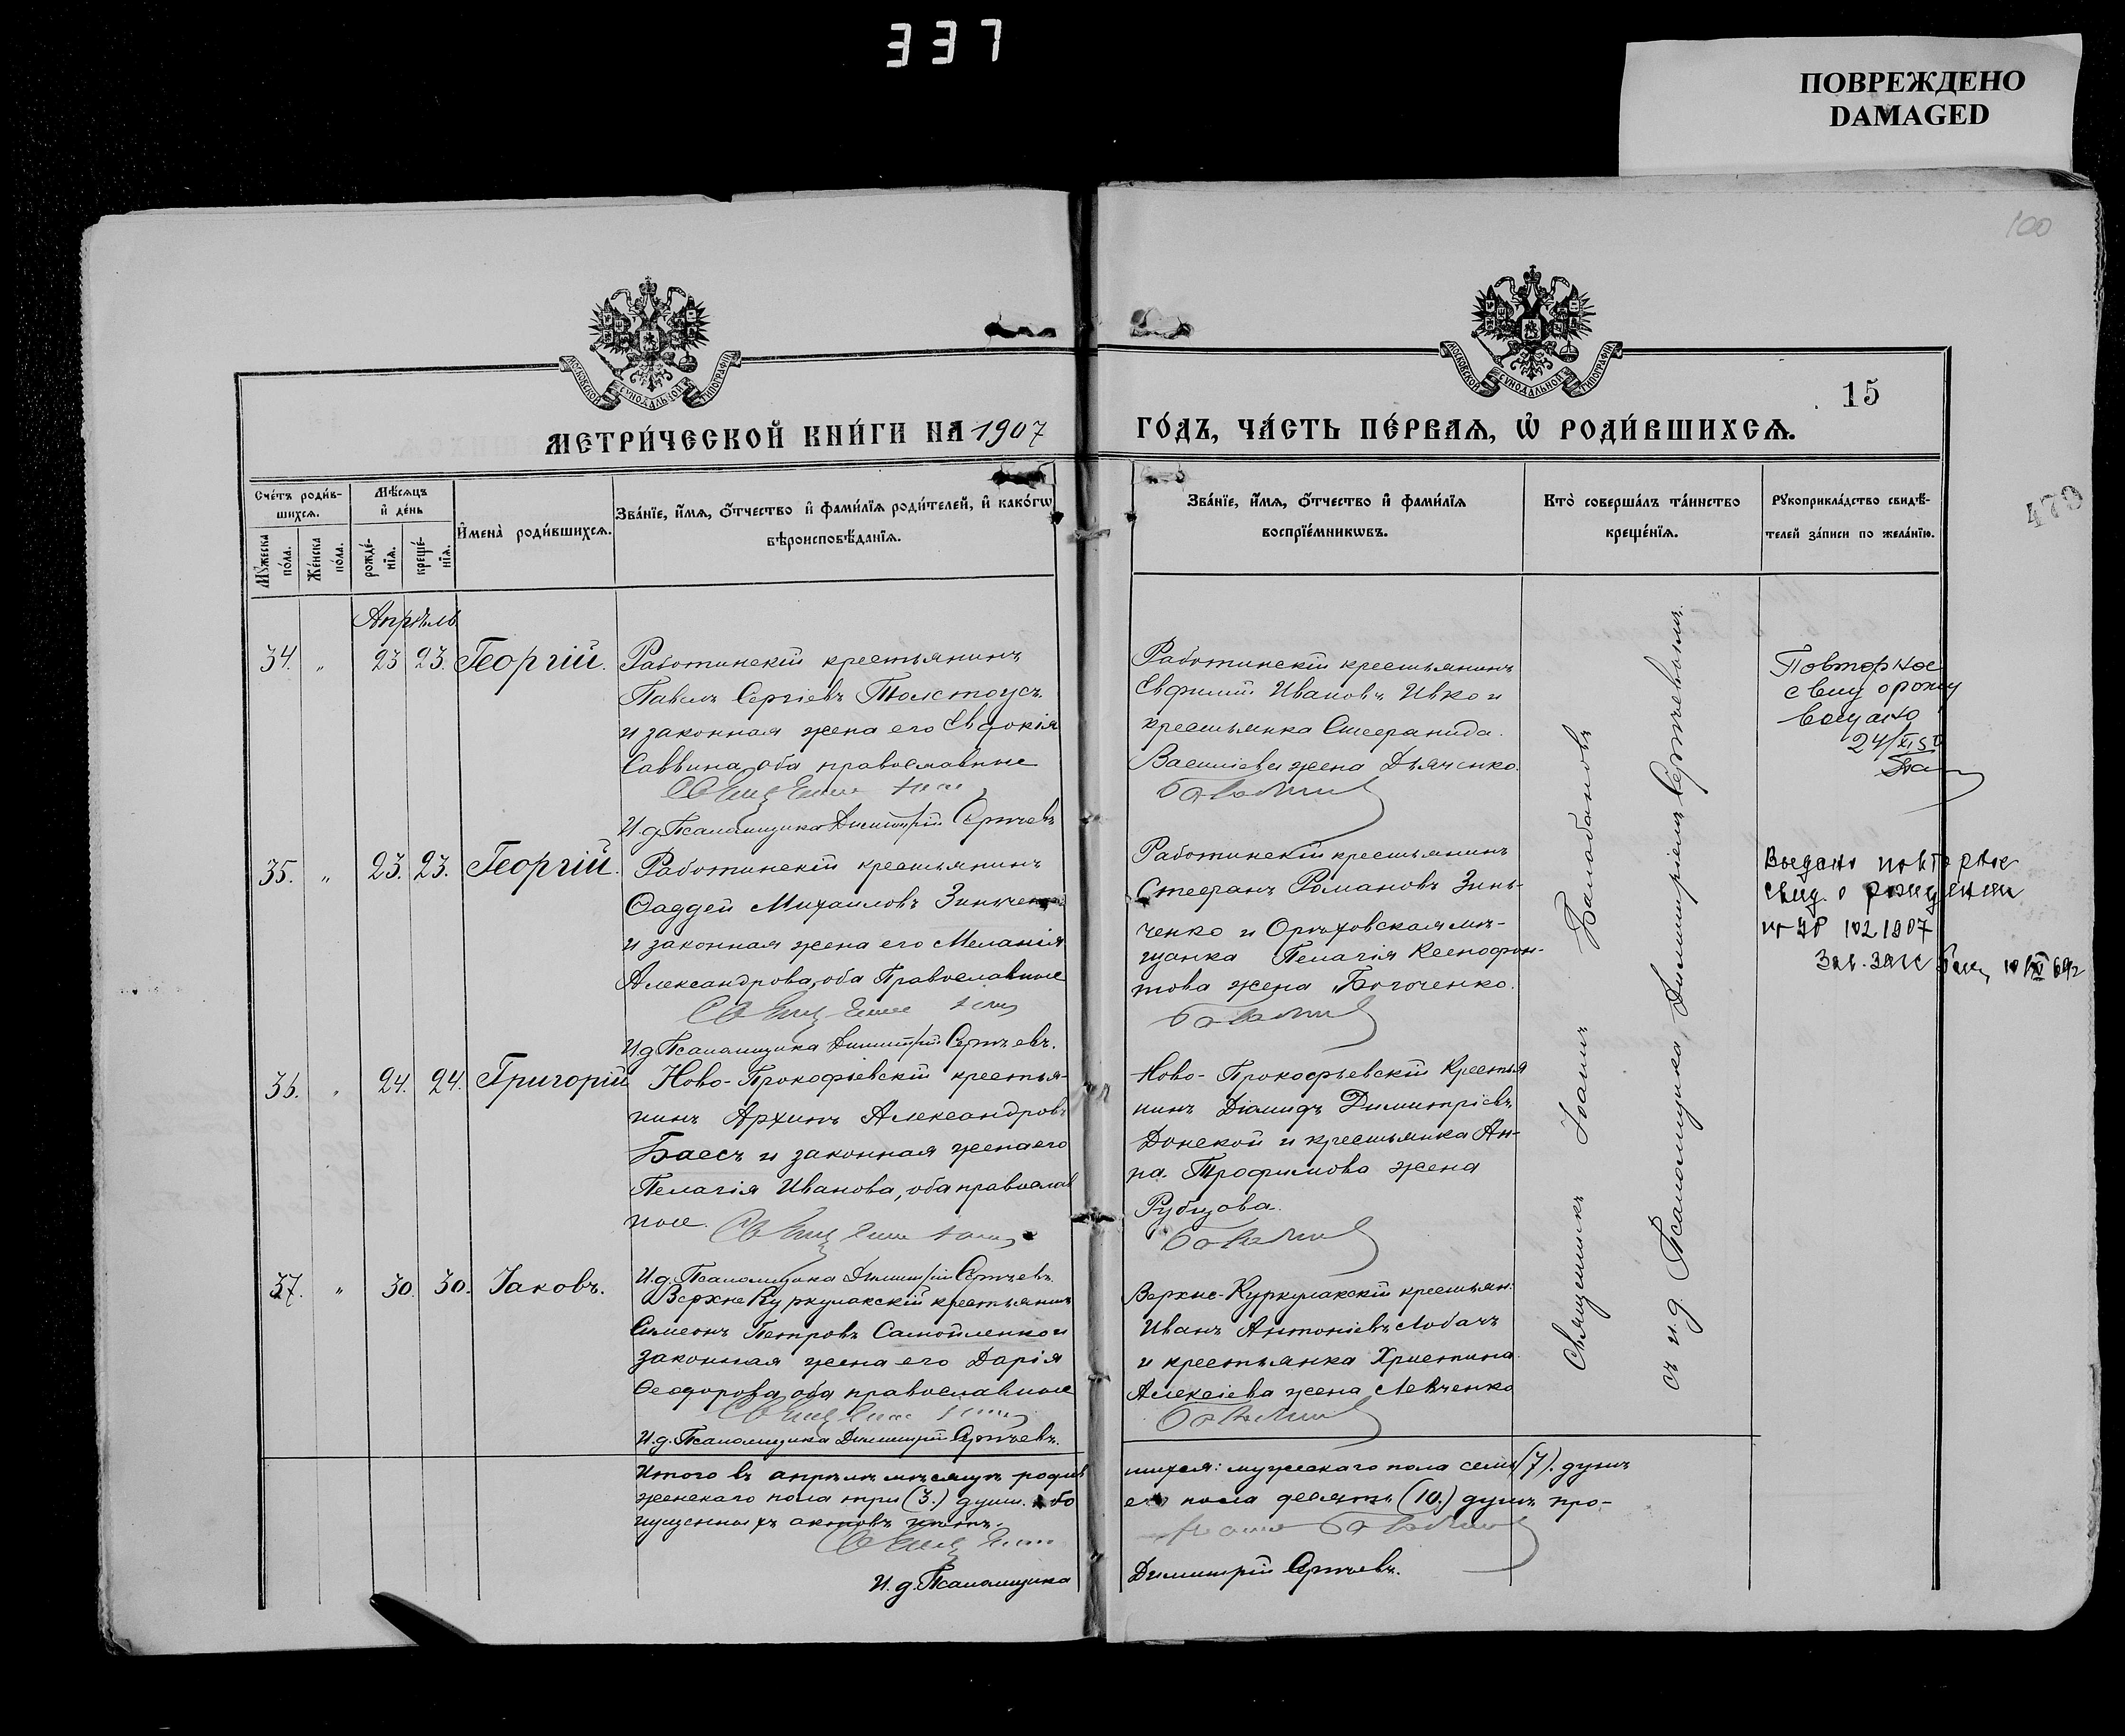 337
ПОВРЕЖДЕНО
DAMAGED
100
МОСКОВСКОЙ СѴНОДАЛЬНОЙ ТИПОГРАФІИ
МОСКОВСКОЙ СѴНОДАЛЬНОЙ ТИПОГРАФІИ
15
479
МЕТРИ́ЧЕСКОЙ КНИ́ГИ НА 1907
ГО́ДЪ, ЧА́СТЬ ПЕ́РВАѦ, Ѡ҆ РОДИ́ВШИХСѦ.
Сче́тъ роди́в-
шихсѧ.
Мꙋ́жеска по́ла.
Же́нска по́ла.
Мѣ́сѧцъ
и҆ де́нь
рожде́-
нїѧ.
креще́-
нїѧ.
И҆мена̀ роди́вшихсѧ.
Зва́нїе, и҆́мѧ, ѻ҆́тчество и҆ фами́лїѧ роди́телей, и҆ како́гѡ
вѣроисповѣ́данїѧ.
Зва́нїе, и҆́мѧ, ѻ҆́тчество и҆ фами́лїѧ
воспрїе́мникѡвъ.
Кто̀ соверша́лъ та́инство
креще́нїѧ.
Рꙋкоприкла́дство свидѣ́-
телей за́писи по жела́нїю.
Апрѣль
34. " 23 23. Георгій.
Работинскій крестьянинъ
Павелъ Сергіевъ Толстоусъ
и законная жена его Евдокія
Саввина, оба православные
И.д. Псаломщика Димитрій Сергѣевъ
Работинскій крестьянинъ
Евфимій Ивановъ Ивко и
крестьянка Стефанида
Василіева жена Дьяченко.
Повторное
свид о рожд
выдано
24/XI
35. " 23. 23. Георгій.
Работинскій крестьянинъ
Ѳаддей Михаиловъ Зинченко
и законная жена его Меланія
Александрова, оба Православные
И.д. Псаломщика Димитрій Сергѣевъ.
Работинскій крестьянинъ
Стефанъ Романовъ Зинь-
ченко и Орѣховская мѣ-
щанка Пелагія Ксенофон-
това жена Богоченко.
Выдано повторное
свид. о рождении
102 1907
36. " 24. 24. Григорій
Ново-Прокофьевскій крестья-
нинъ Архипъ Александровъ
Баесъ и законная жена его
Пелагія Иванова, оба православ
ные.
И.д. Псаломщика Димитрій Сергѣевъ
Ново-Прокофьевскій крестья
нинъ Діомидъ Димитріевъ
Донской и крестьянка Ан-
на Трофимова жена
Рубцова.
37. " 30. 30. Іаковъ.
Верхне Куркулакскій крестьянинъ
Симеонъ Петровъ Самойленко и
законная жена его Дарія
Ѳеодорова, оба православные
И.д. Псаломщика Димитрій Сергѣевъ.
Верхне-Куркулакскій крестьян.
Иванъ Антоніевъ Лобачъ
и крестьянка Христина
Алексіева жена Левченко
Священникъ Іоаннъ Балабановъ
съ и.д. Псаломщика Димитріемъ Сергѣевымъ.
Итого въ апрѣлѣ мѣсяцѣ родив
шихся: мужескаго пола семь (7). душъ
женскаго пола три (3.) души. обо
его пола десять (10.) душъ про-
пущенныхъ актовъ нѣтъ.
И.д. Псаломщика
Димитрій Сергѣевъ.